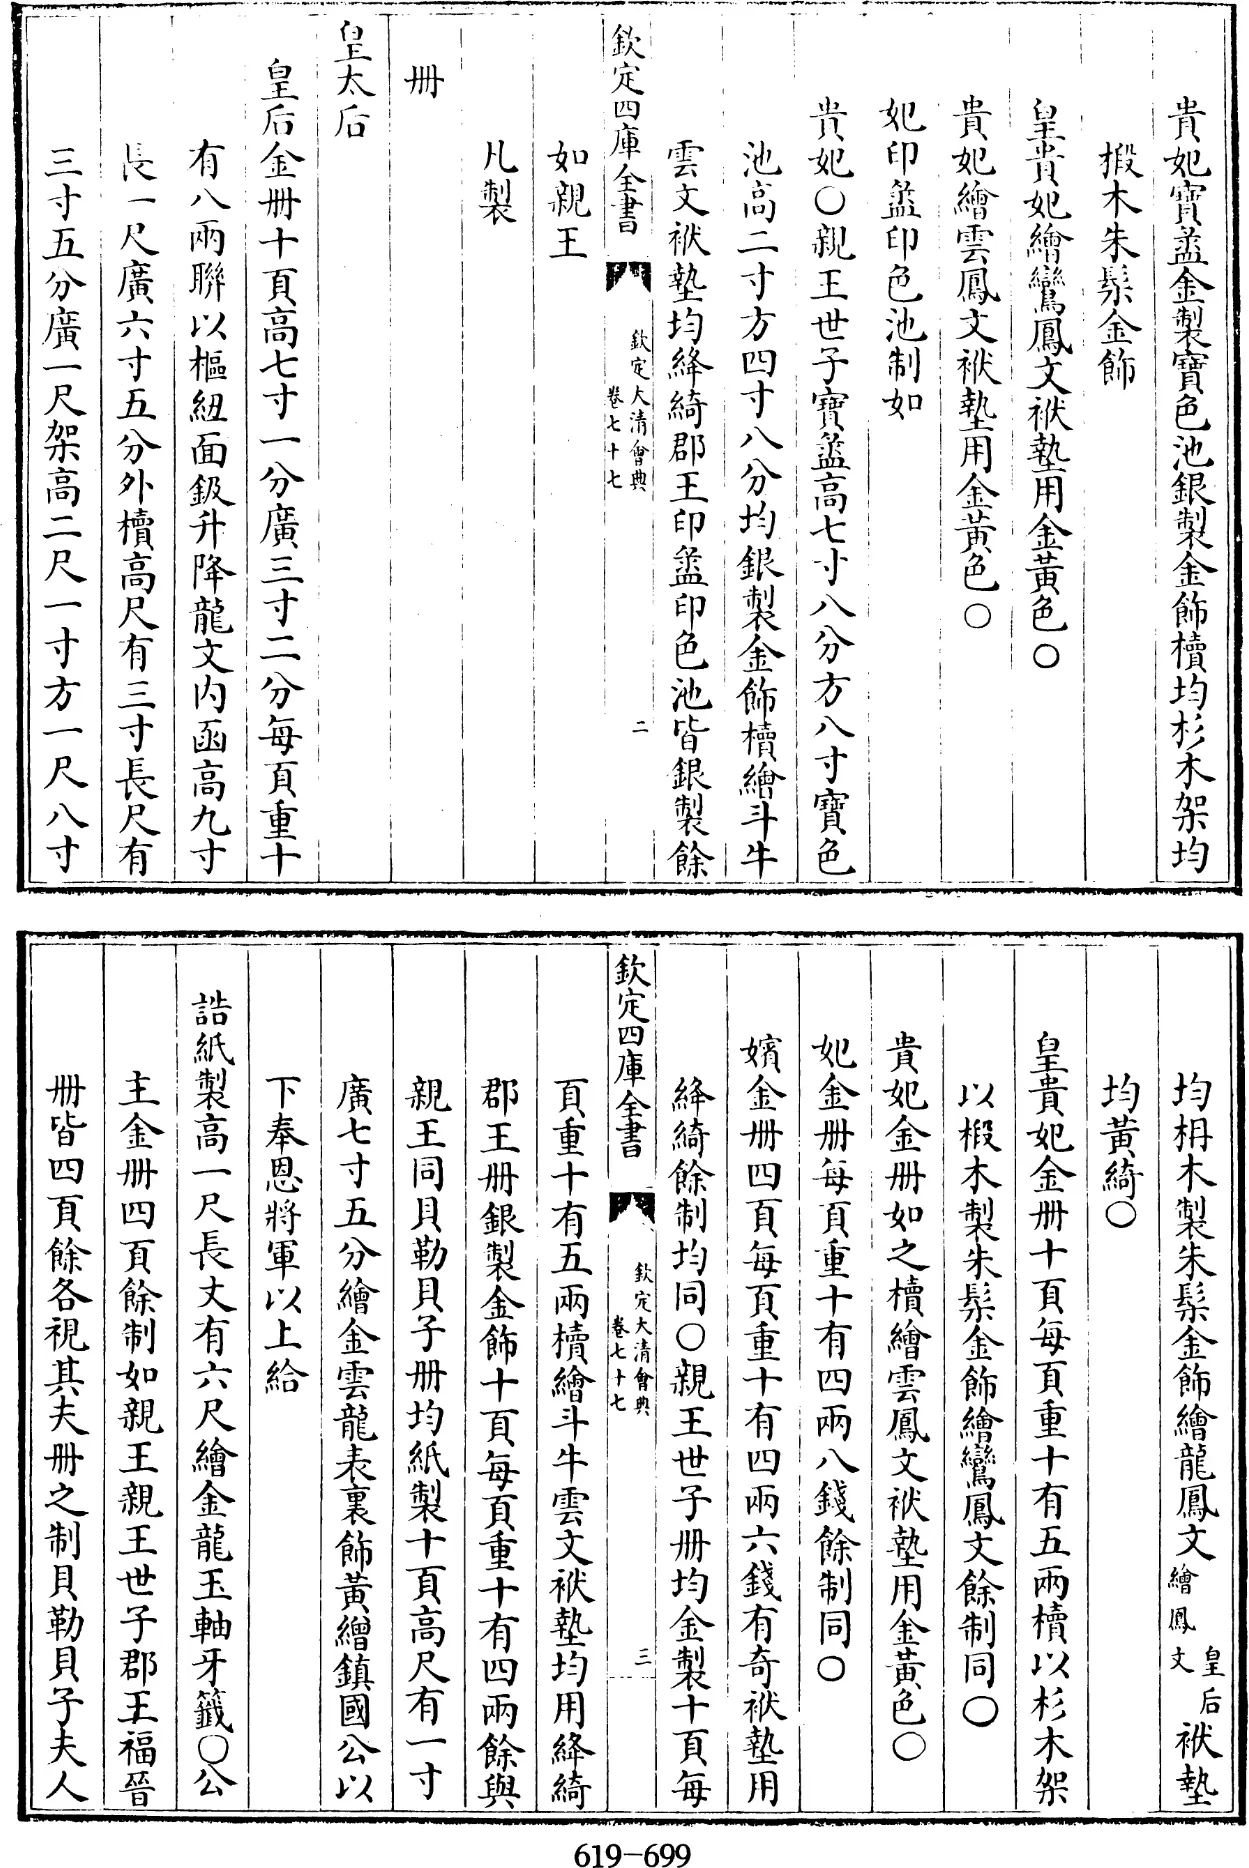 貴妃寶盝金製寶色池銀製金飾櫝均杉木架均
椴木朱髹金飾
皇貴妃繪鸞鳳文袱墊用金黃色〇
貴妃繪雲鳳文袱墊用金黃色〇
妃印盝印色池制如
貴妃〇親王世子寶盝高七寸八分方八寸寶色
池高二寸方四寸八分均銀製金飾櫝繪斗牛
雲文袱墊均絳綺郡王印盝印色池皆銀製餘
如親王
凡製
欽定四庫全書
欽定大清會典
卷七十七
二
冊
皇太后
皇后金冊十頁高七寸一分廣三寸二分每頁重十
有八兩聯以樞紐面鈒升降龍文内函高九寸
長一尺廣六寸五分外櫝高尺有三寸長尺有
三寸五分廣一尺架高二尺一寸方一尺八寸
均枏木製朱髹金飾繪龍鳳文皇后繪鳳文袱墊
均黃綺〇
皇貴妃金冊十頁每頁重十有五兩櫝以杉木架
以椴木製朱髹金飾繪鸞鳳文餘制同〇
貴妃金冊如之櫝繪雲鳳文袱墊用金黃色〇
妃金冊每頁重十有四兩八錢餘制同〇
嬪金冊四頁每頁重十有四兩六錢有奇袱墊用
絳綺餘制均同〇親王世子冊均金製十頁每
欽定四庫全書
欽定大清會典
卷七十七
三
頁重十有五兩櫝繪斗牛雲文袱墊均用絳綺
郡王冊銀製金飾十頁每頁重十有四兩餘與
親王同貝勒貝子冊均紙製十頁高尺有一寸
廣七寸五分繪金雲龍表裏飾黃繒鎮國公以
下奉恩將軍以上給
誥紙製高一尺長丈有六尺繪金龍玉軸牙籤〇公
主金冊四頁餘制如親王親王世子郡王福晉
冊皆四頁餘各視其夫冊之制貝勒貝子夫人
619-699